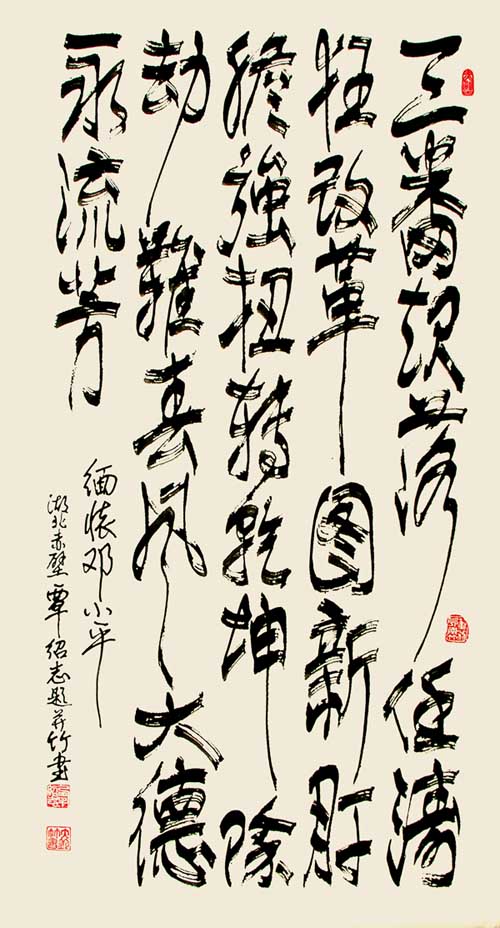 三番起落任涛
狂改革图新肝
膽強扭轉乾坤除
劫難春风大德
永流芳
缅怀邓小平
湖北赤壁覃绍志题并竹書